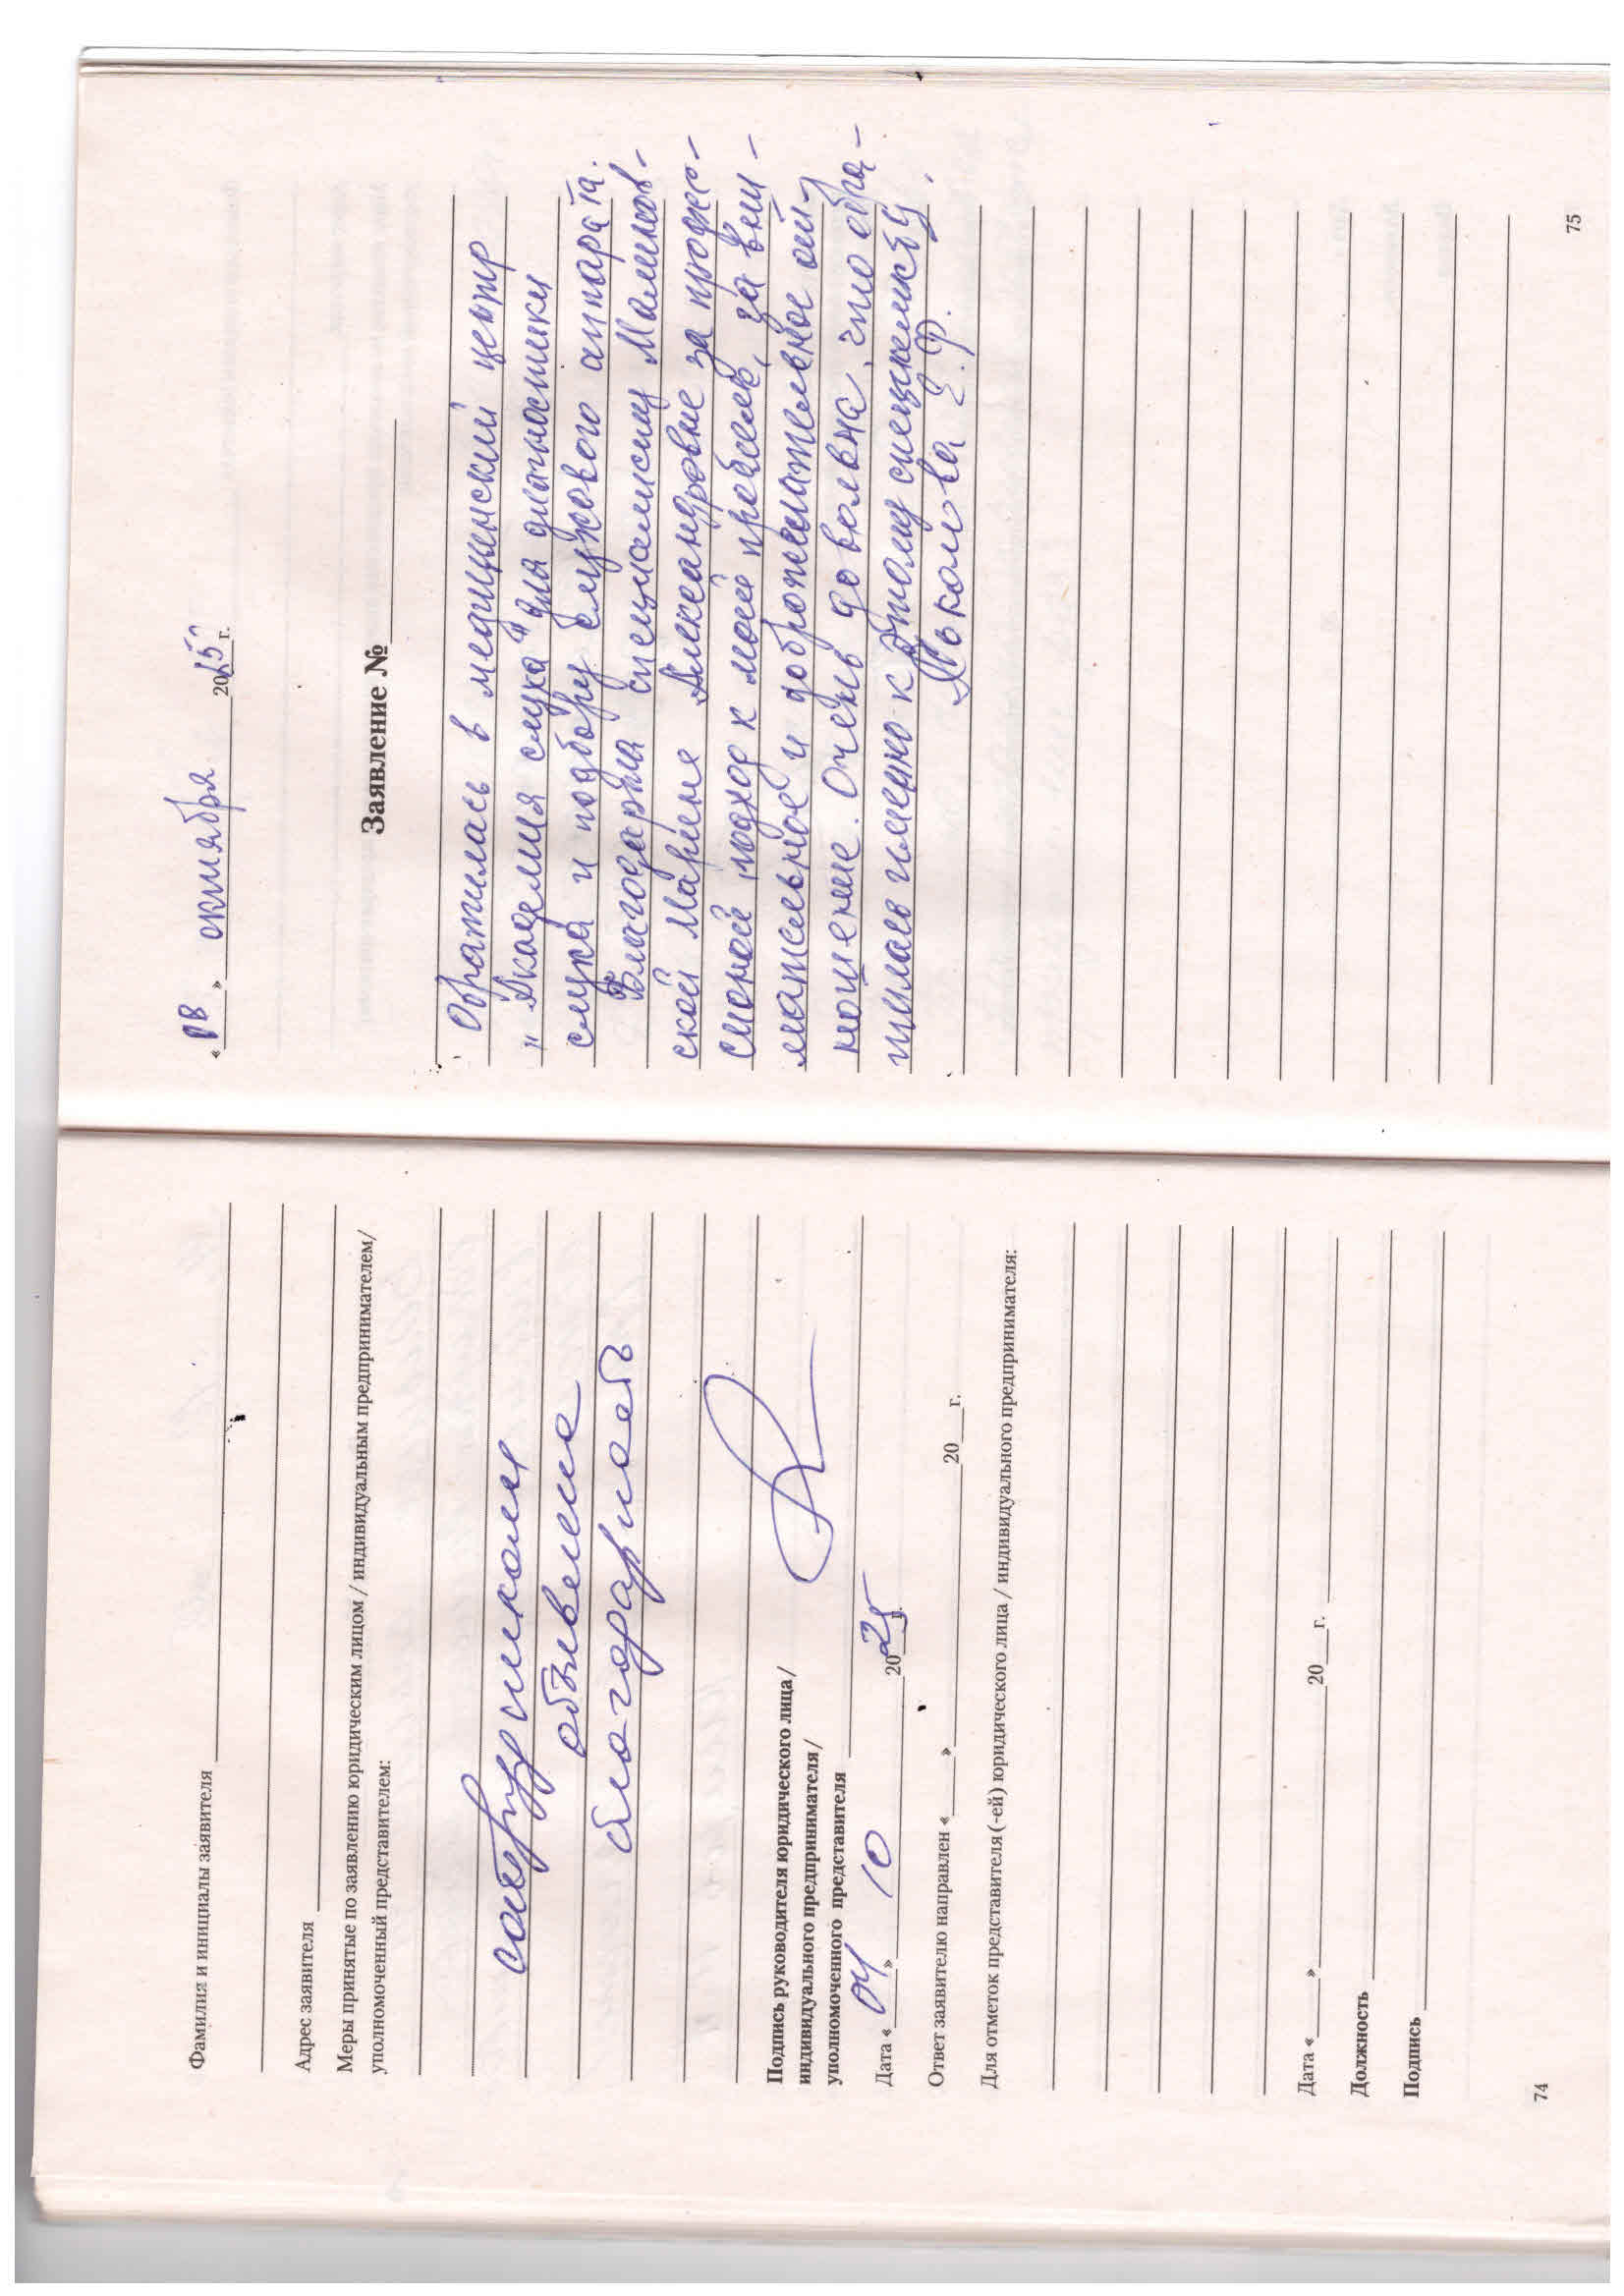 Фамилия и инициалы заявителя
Адрес заявителя
Меры принятые по заявлению юридическим лицом / индивидуальным предпринимателем/
уполномоченный представителем:
сотрудникам
объявлена
благодарность
Подпись руководителя юридического лица/
индивидуального предпринимателя/
уполномоченного представителя
Дата « 04 » 10 2025 г.
Ответ заявителю направлен «___» ___ 20___г.
Для отметок представителя (-ей) юридического лица / индивидуального предпринимателя:
Дата «___» ___ 20___г.
Должность
Подпись
74
« » октября 2025 г.
Заявление №
Обратилась в медицинский центр
"Академия слуха" для диагностики
слуха и подбору слухового аппарата.
Благодарна специалисту Малинов-
ской Марине Александровне за
подход к моей проблеме, за вни-
мательное и доброжелательное от-
ношение. Очень довольна, что обра-
тилась именно к этому специалисту.
Е.Ф.
75